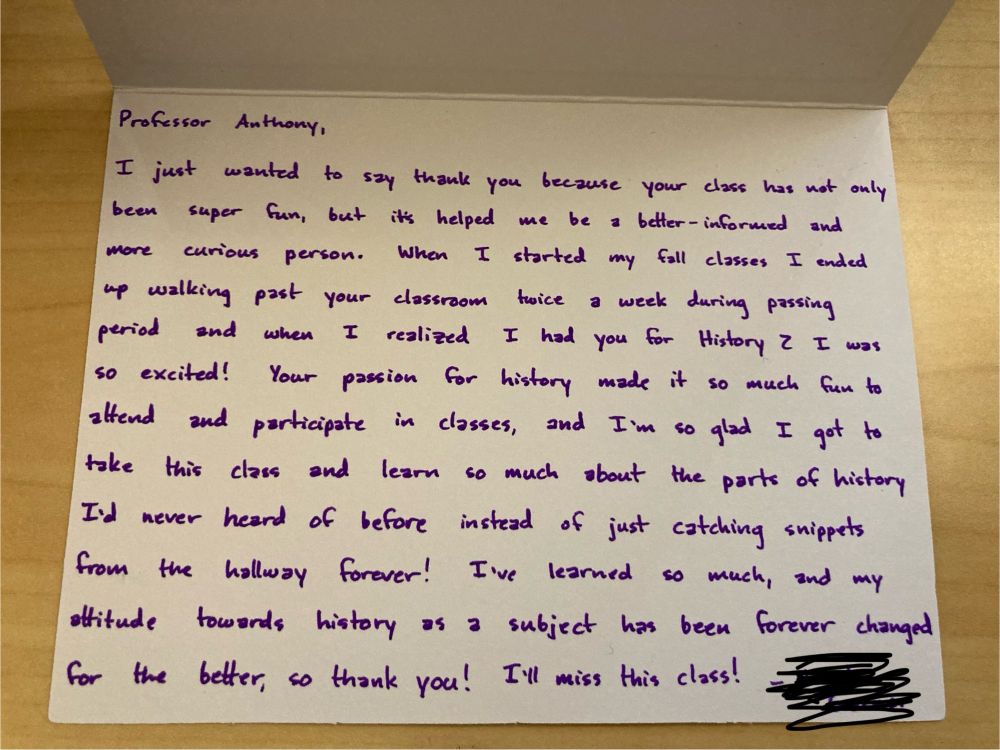 Professor Anthony,
I just wanted to say thank you because your class has not only
been super fun, but it's helped me be a better-informed and
more curious person. When I started my fall classes I ended
up walking past your classroom twice a week during passing
period and when I realized I had you for History 2 I was
so excited! Your passion for history made it so much fun to
attend and participate in classes, and I'm so glad I got to
take this class and learn so much about the parts of history
I'd never heard of before instead of just catching snippets
from the hallway forever! I've learned so much, and my
attitude towards history as a subject has been forever changed
for the better, so thank you! I'll miss this class! -